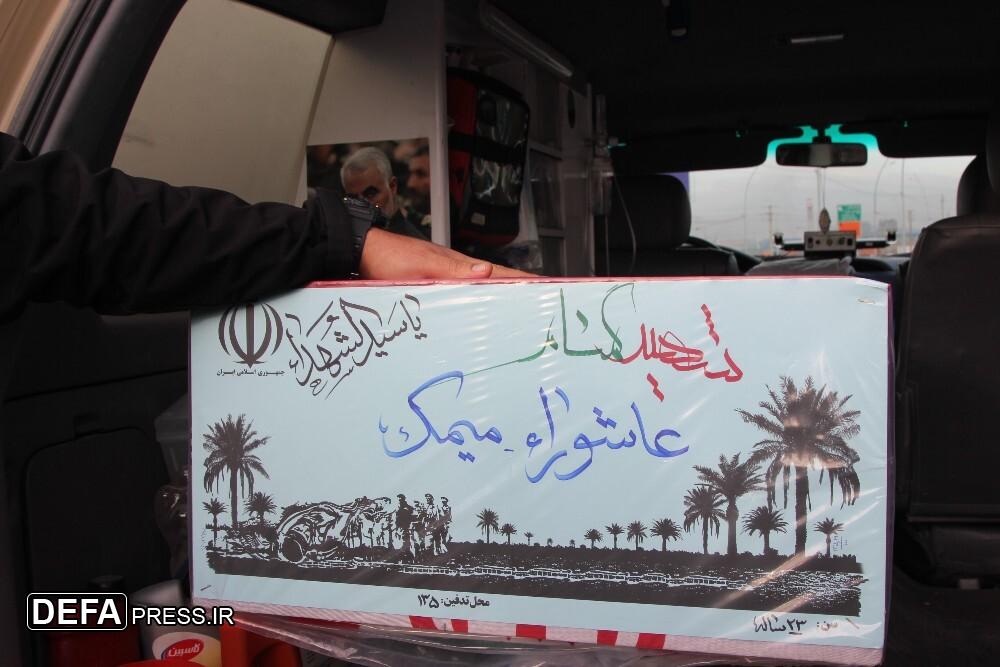 یا سیدالشهداء
جمهوری اسلامی ایران
شهید گمنام
عاشوراء میمک
محل تدفین: ۱۳۵
سن: ۲۳ ساله
DEFAPRESS.IR